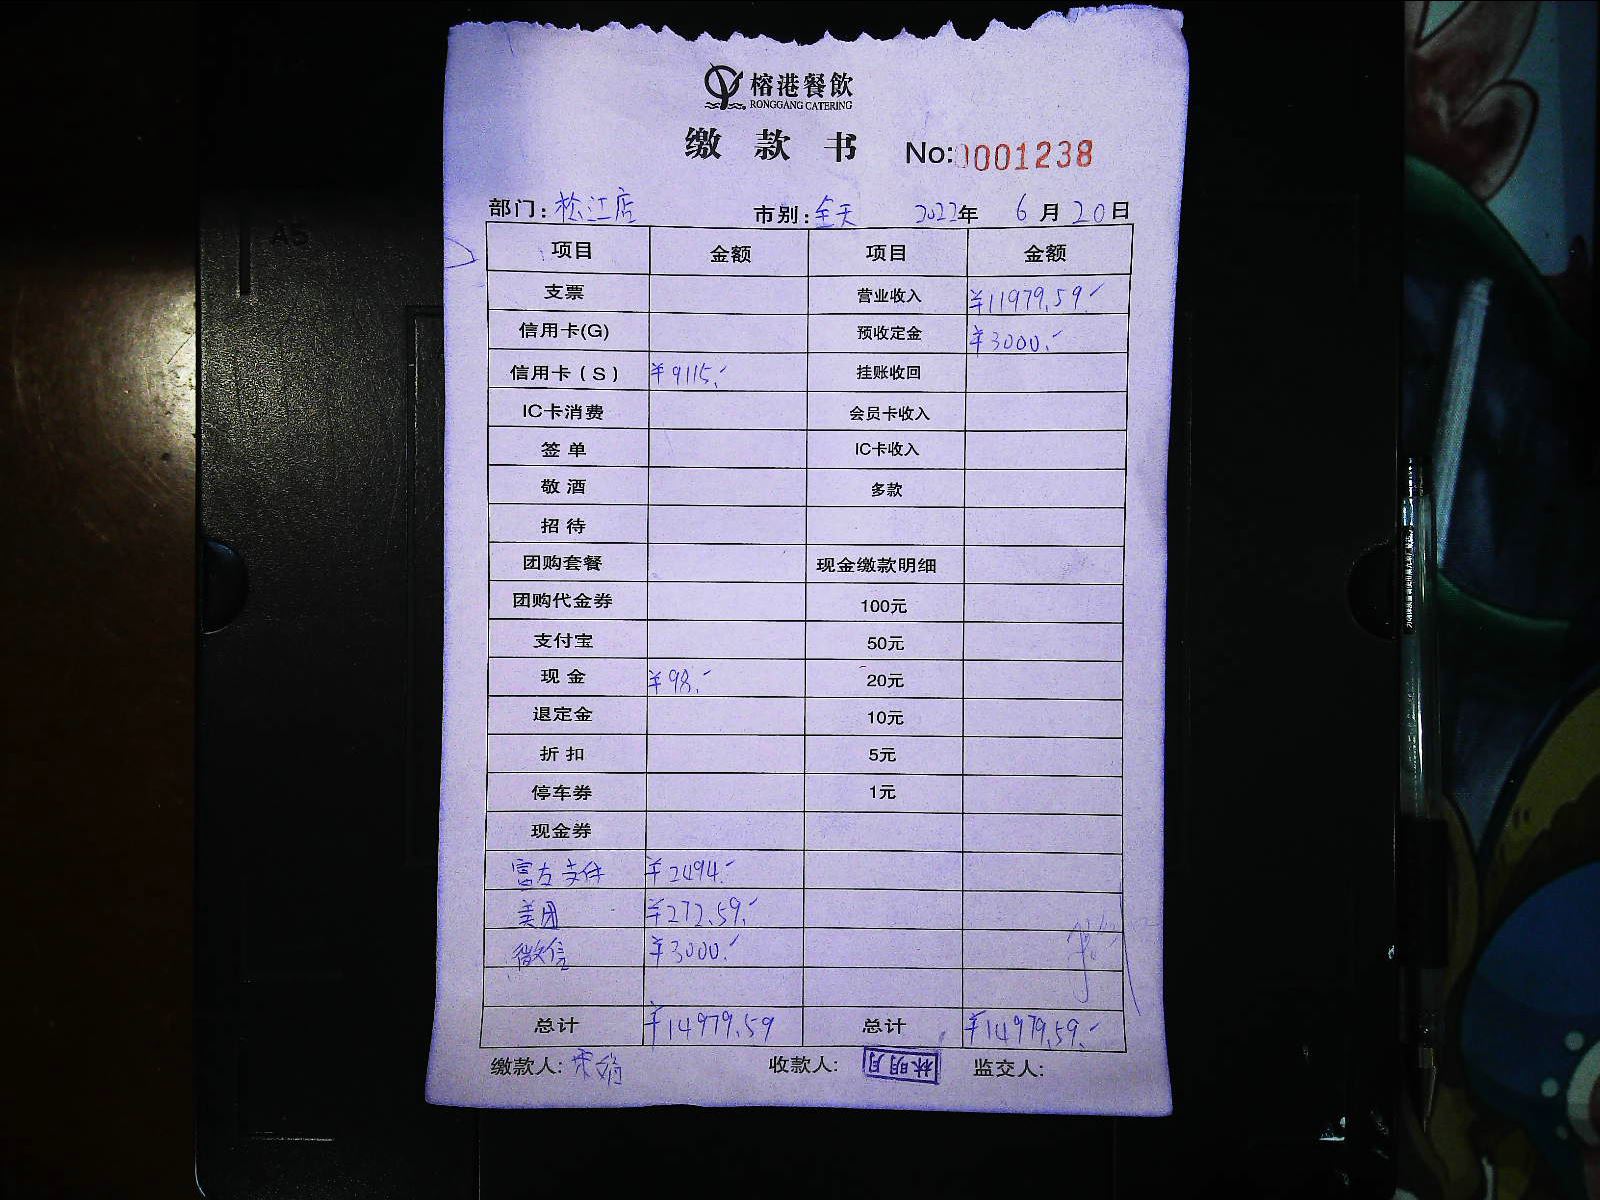 榕港餐飲
RONGGANG CATERING
缴款书 No:0001238
部门:松江店 市别:全天 2022年 6月20日
项目 金额 项目 金额
支票 营业收入 ¥11979.59.-
信用卡(G) 预收定金 ¥3000.-
信用卡(S) ¥9115.- 挂账收回
IC卡消费 会员卡收入
签单 IC卡收入
敬酒 多款
招待
团购套餐 现金缴款明细
团购代金券 100元
支付宝 50元
现金 ¥98.- 20元
退定金 10元
折扣 5元
停车券 1元
现金券
富友支付 ¥2494.-
美团 ¥272.59.-
微信 ¥3000.-
总计 ¥14979.59 总计 ¥14979.59.-
缴款人: 收款人: 林明月 监交人: